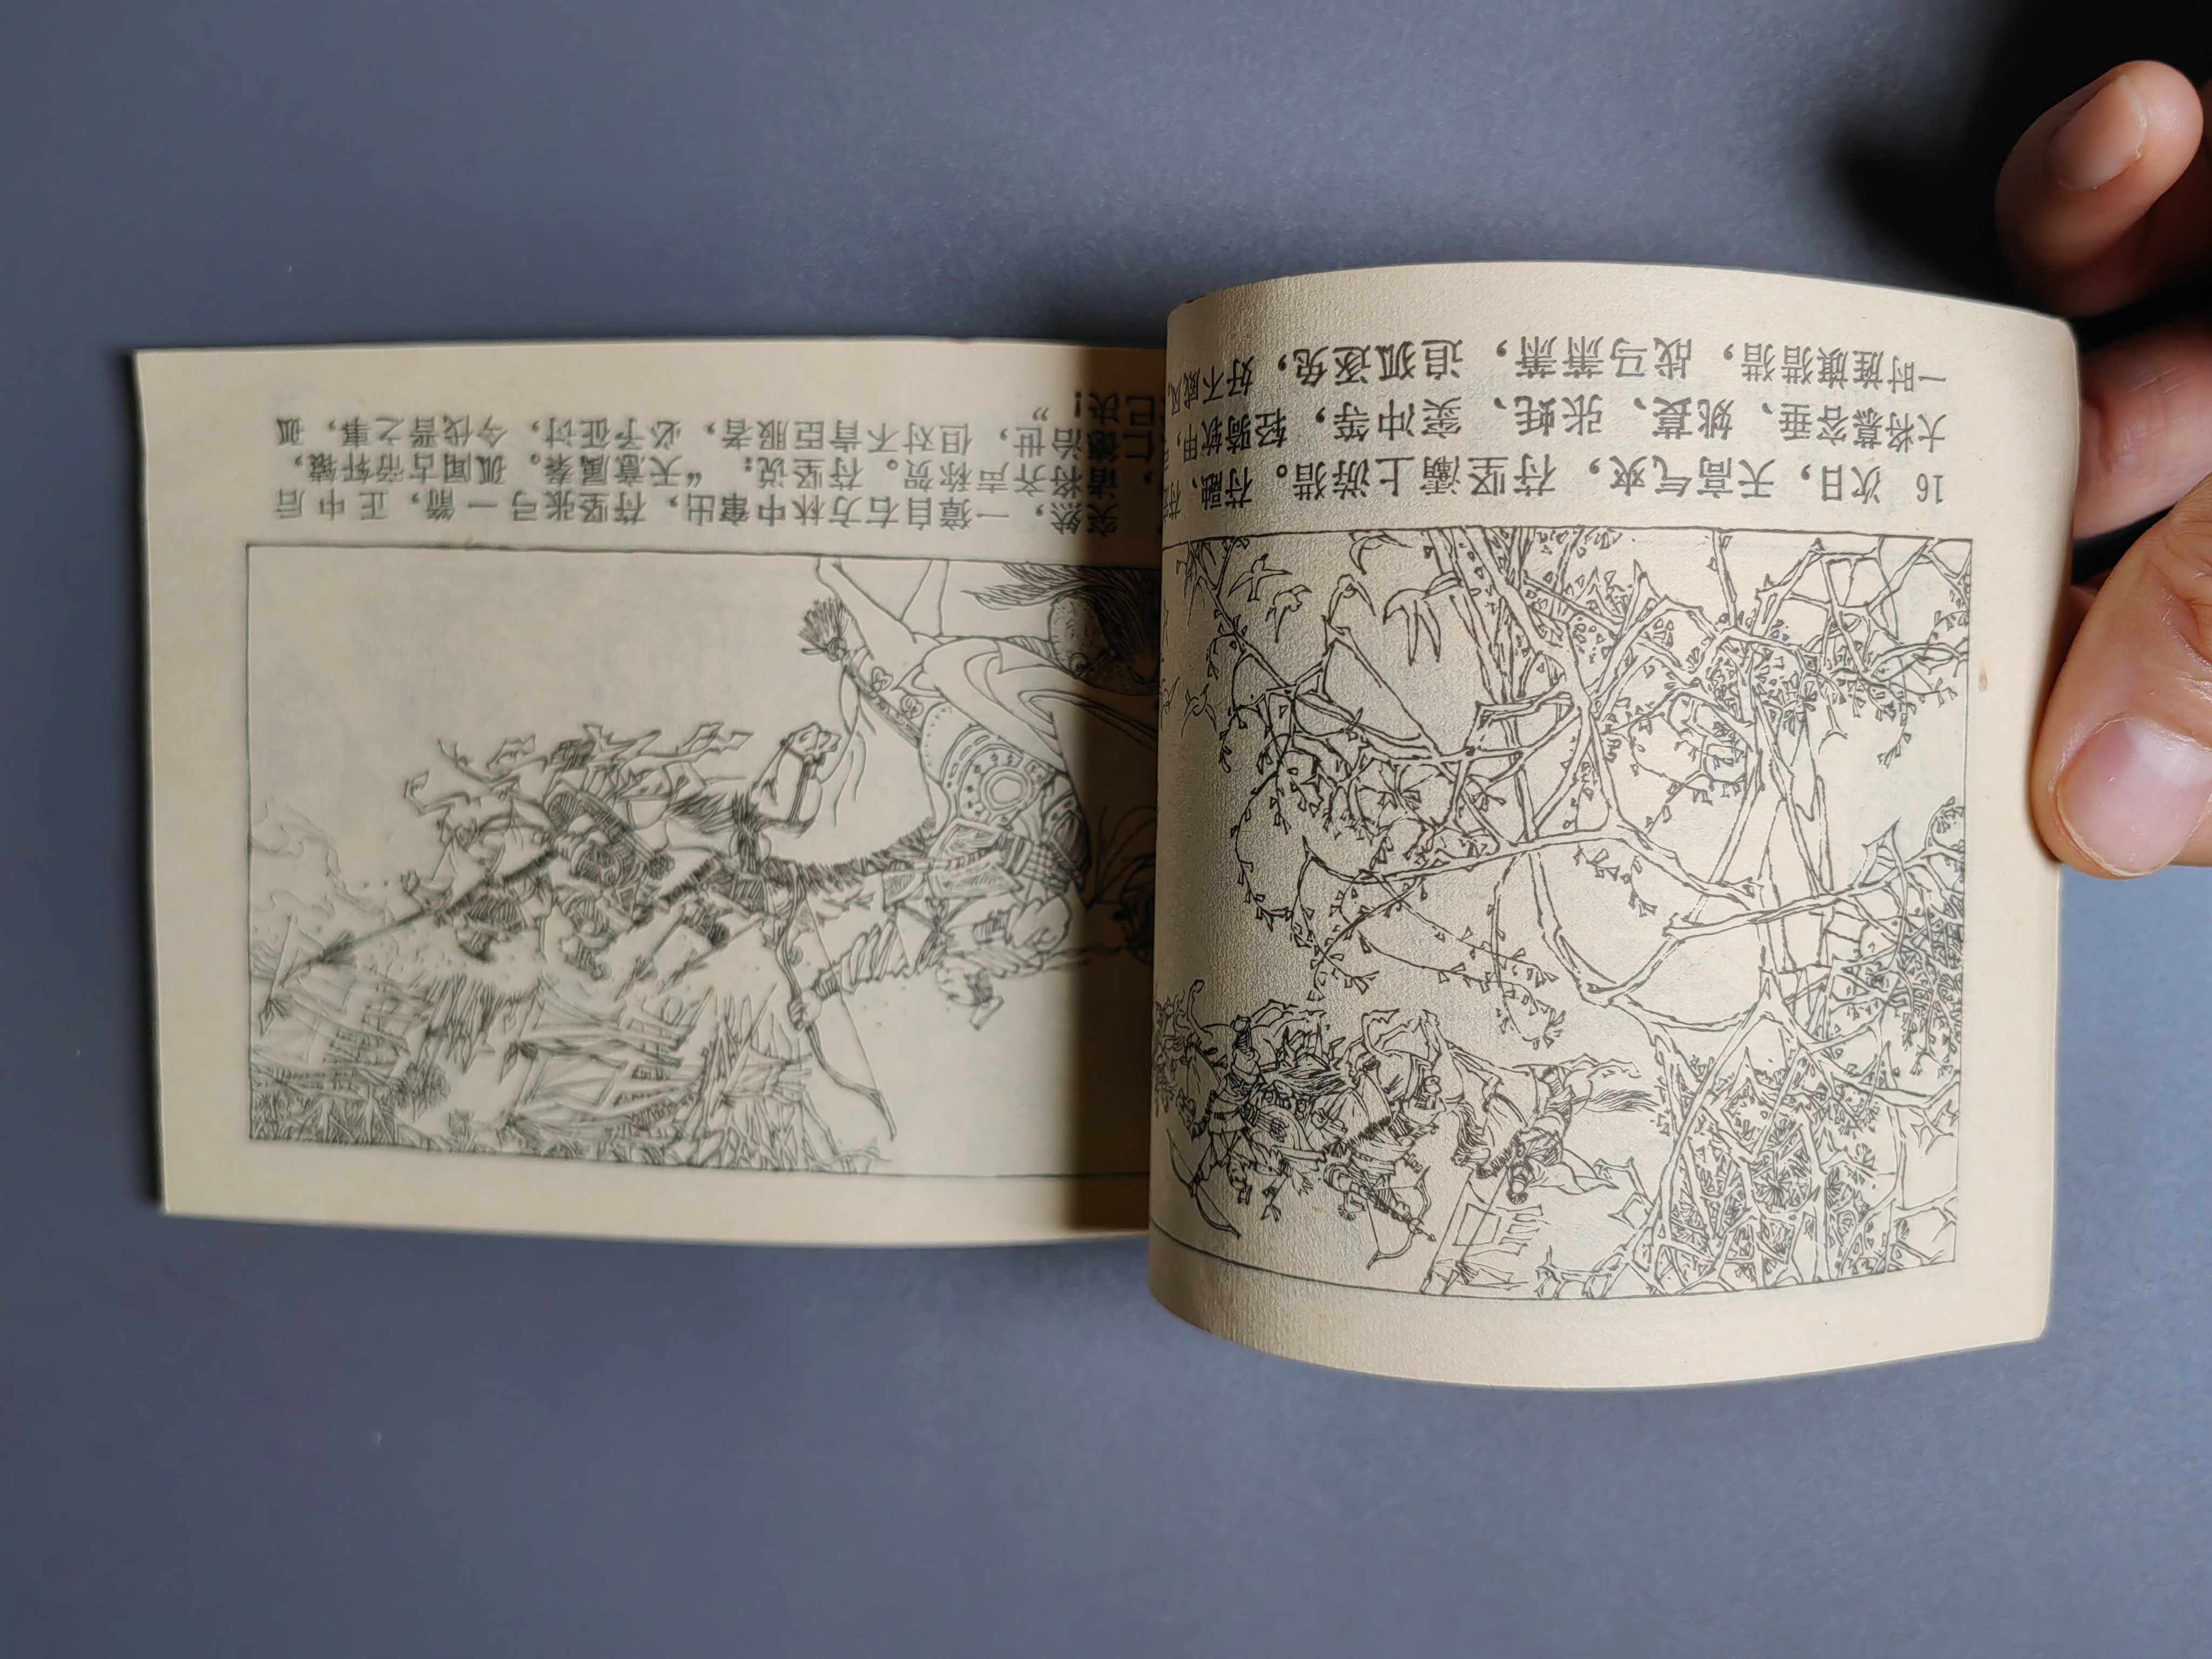 16 次日，天高气爽，苻坚灞上游猎。苻融、
大将慕容垂、姚苌、张蚝、窦冲等，轻骑软甲，
一时旌旗猎猎，战马萧萧，追狐逐兔，好不威风
突然，一獐自右方林中窜出，苻坚张弓一箭，正中后
，诸将齐声称贺。苻坚说：“天意属秦。孤闻古帝轩辕，
仁德治世，但对不肯臣服者，必予征讨，今伐晋之事，孤
已决！”